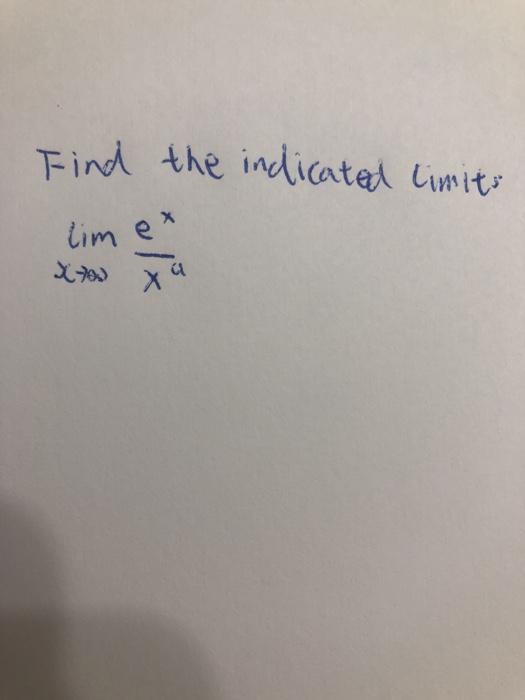 Find the indicated limits
lim e^x
x→∞ x^a